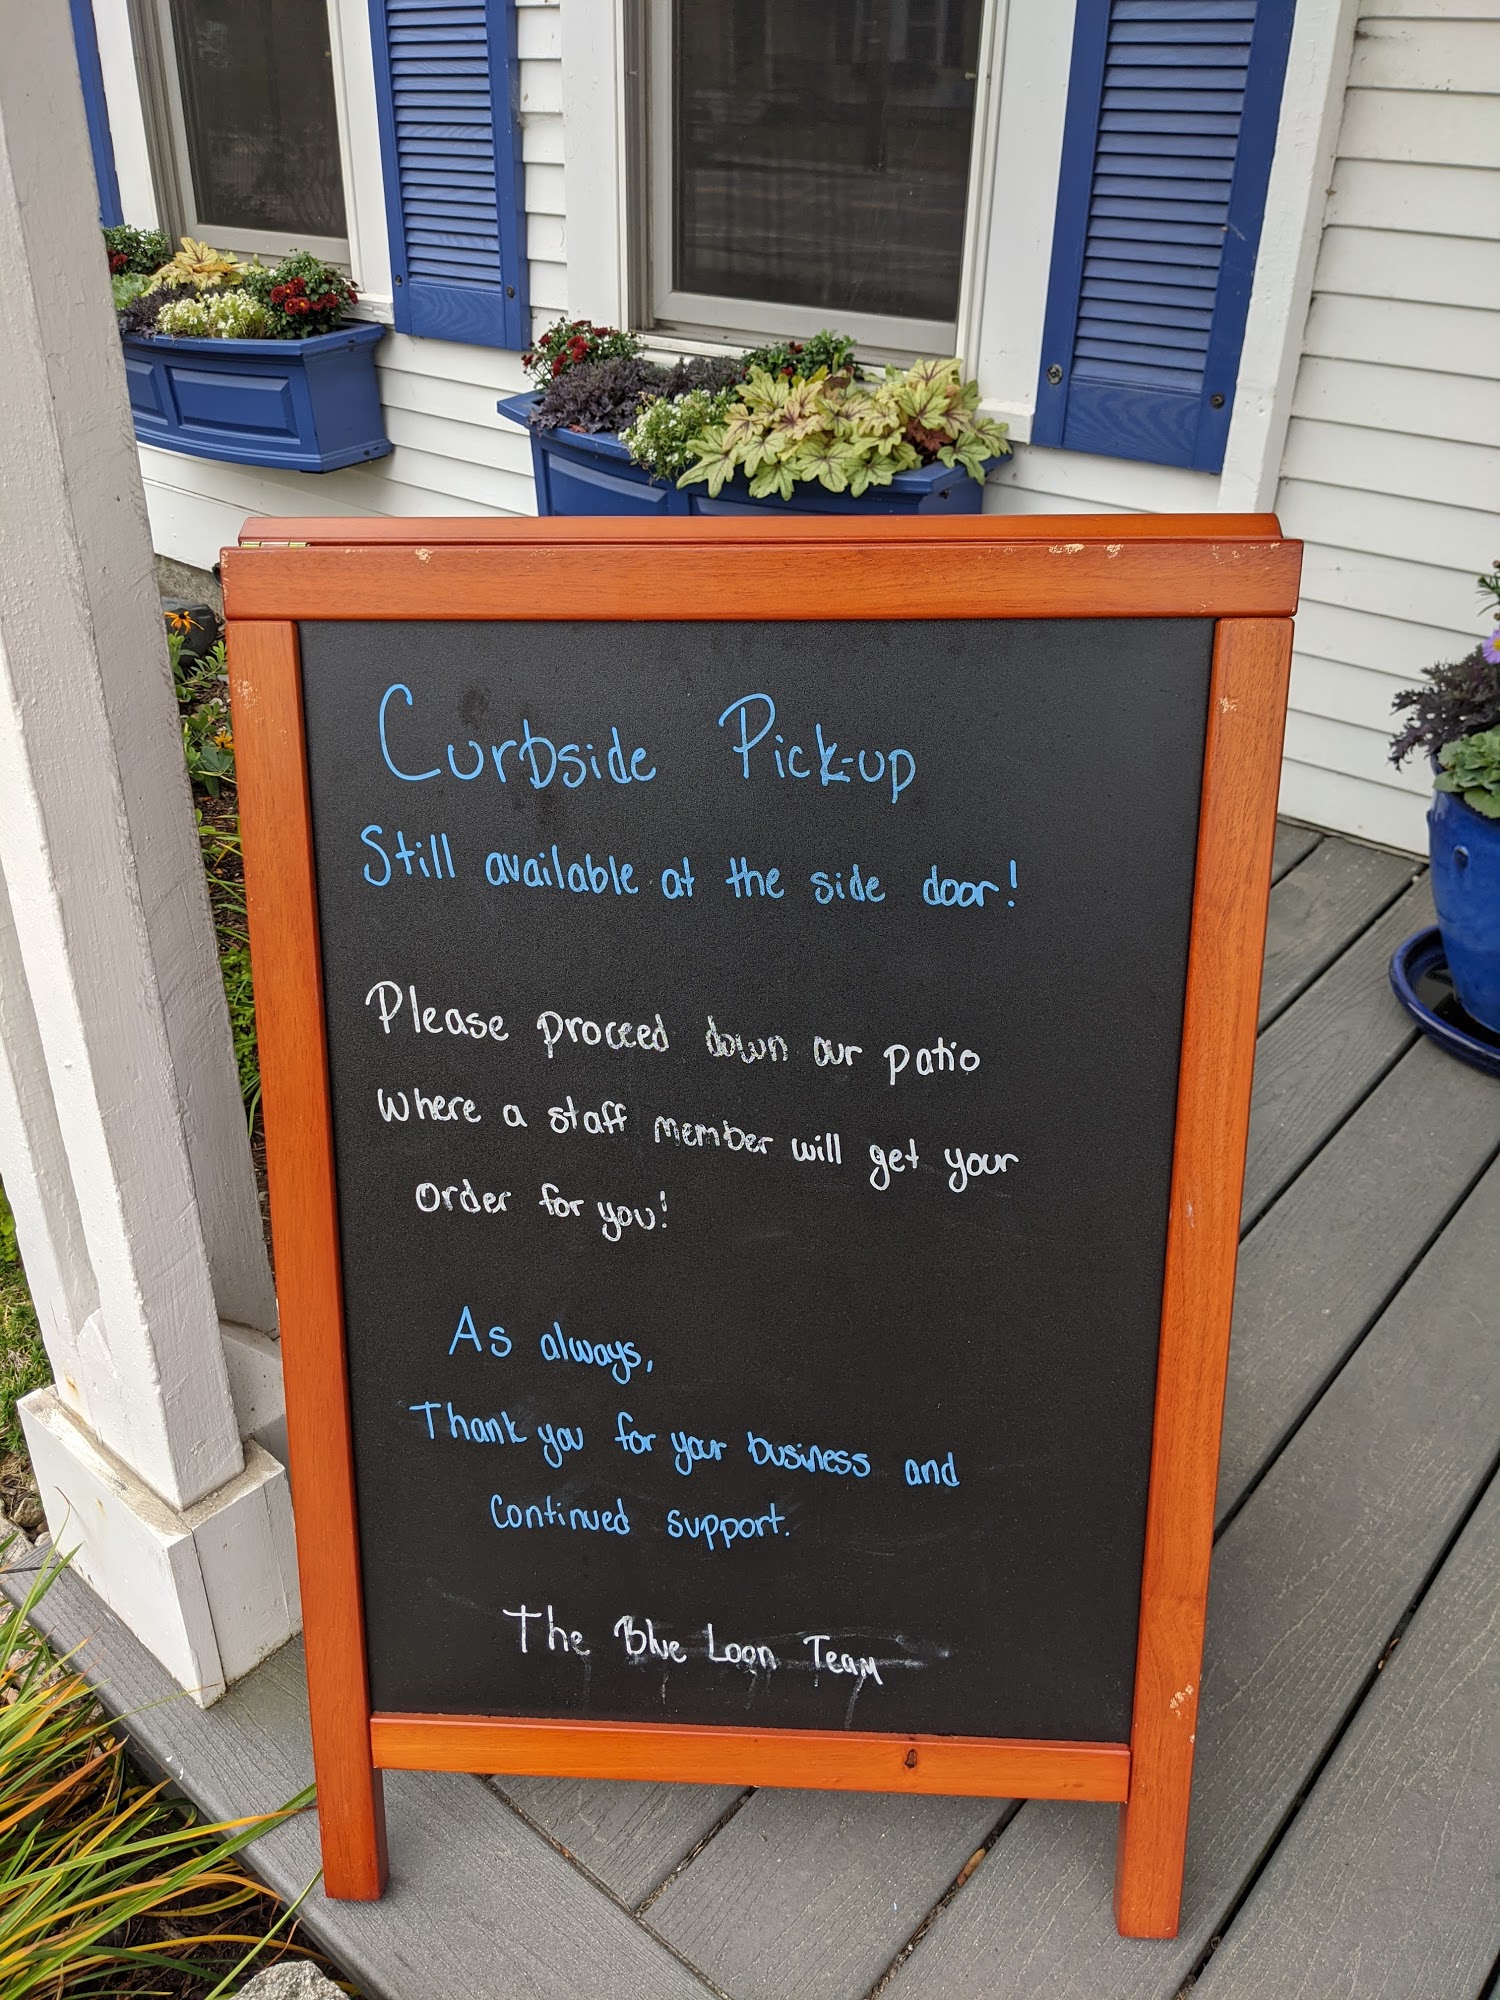 Curbside Pick-up
Still available at the side door!
Please proceed down our patio
where a staff member will get your
order for you!
As always,
Thank you for your business and
Continued support.
The Blue Loon Team